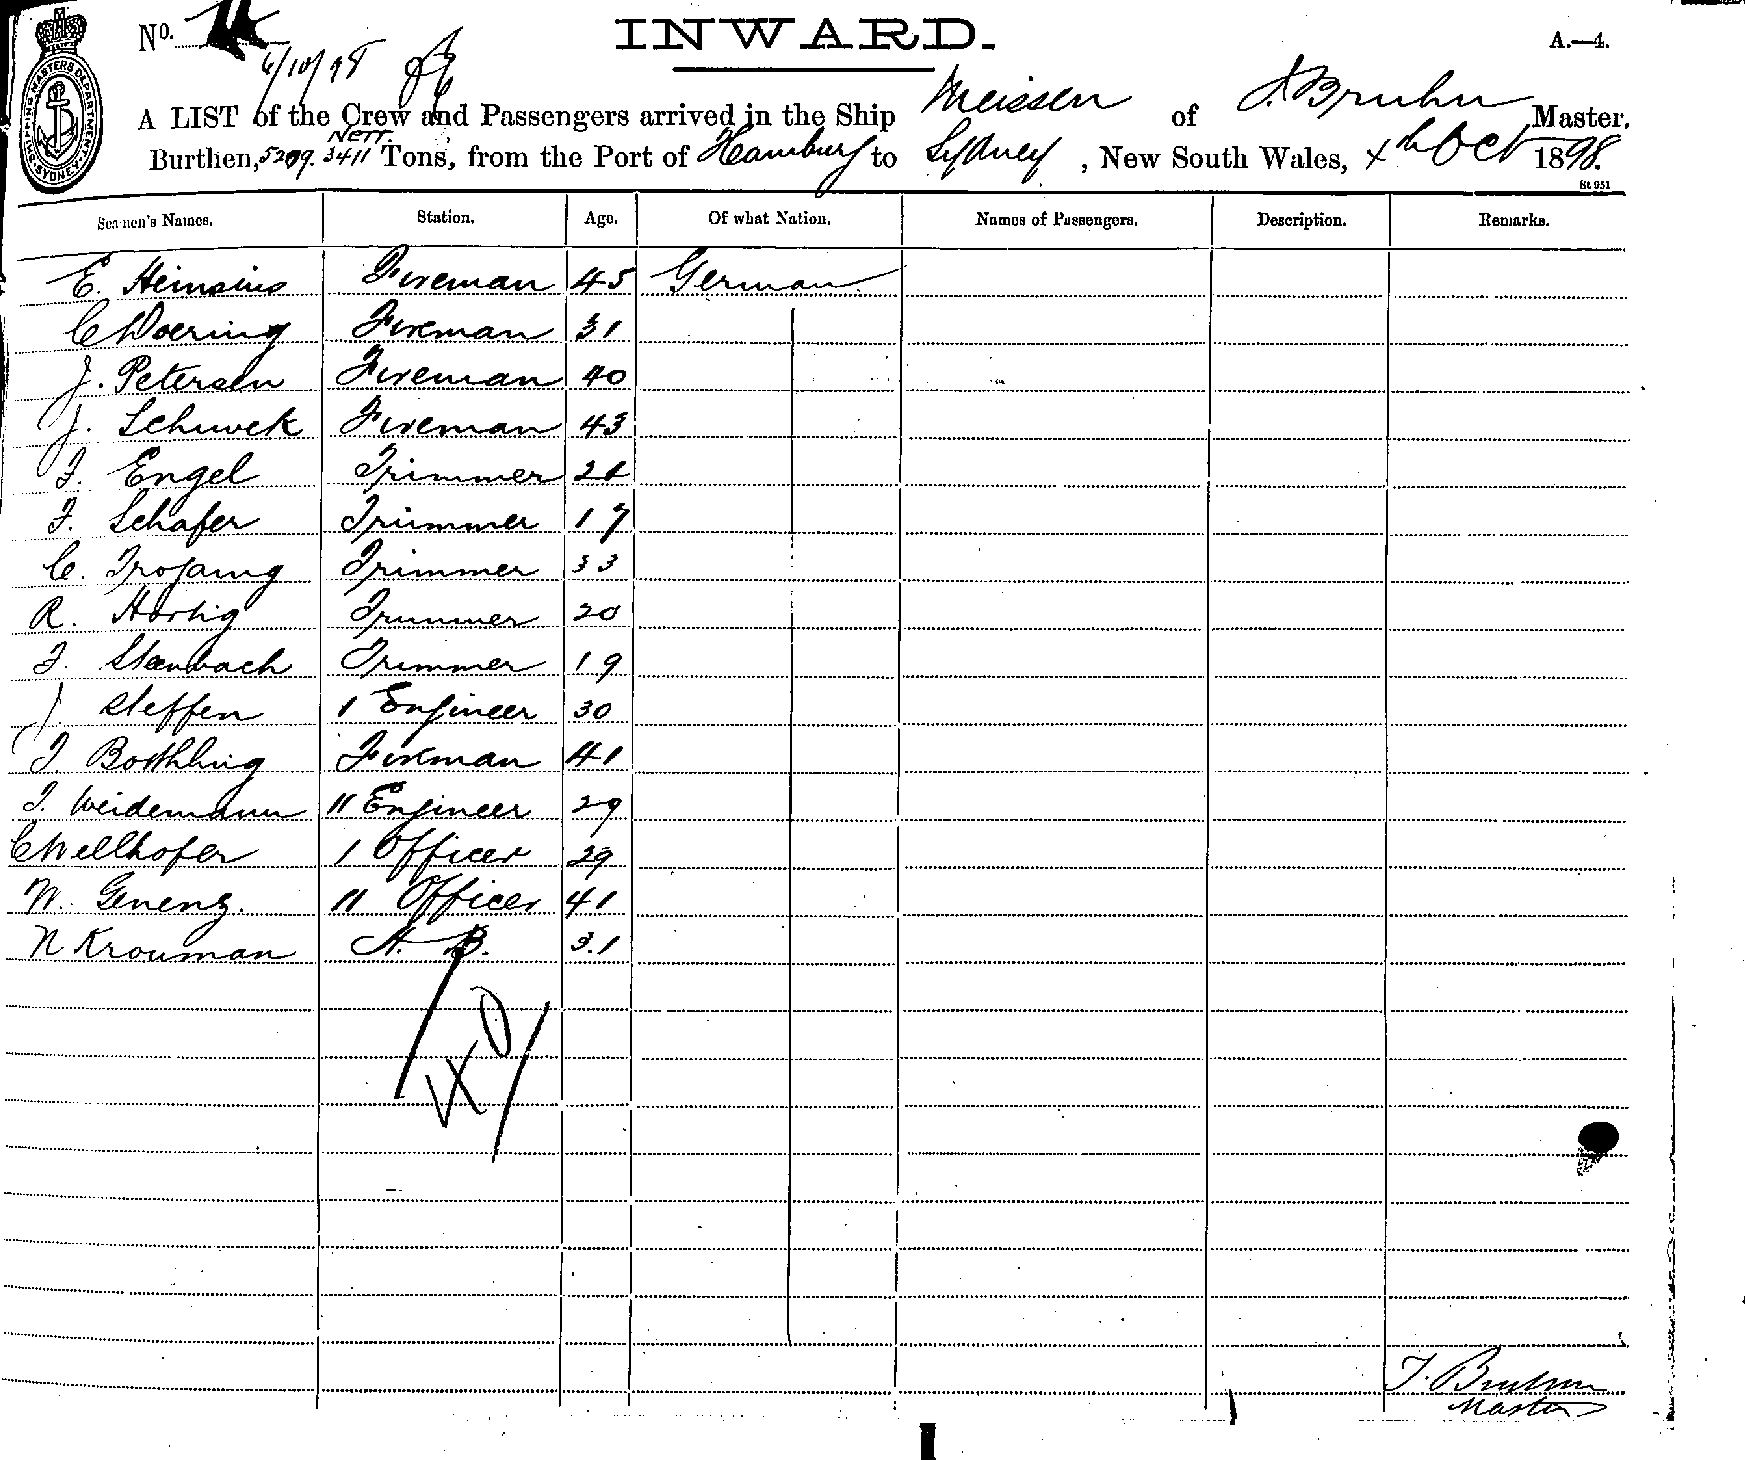 No.
INWARD.
A.—4.
6/10/98
A LIST of the Crew and Passengers arrived in the Ship Meissen of J. Bruhn Master,
Burthen, 5209. Nett. 3411 Tons, from the Port of Hamburg to Sydney, New South Wales, 4th Oct 1898.
St 951
Seamen's Names. Station. Age. Of what Nation. Names of Passengers. Description. Remarks.
E. Heinsius Fireman 45 German
C Doering Fireman 31
J. Petersen Fireman 40
J. Schuvek Fireman 43
F. Engel Trimmer 21
F. Schafer Trimmer 17
C. Trojaing Trimmer 33
R. Hartig Trimmer 20
F. Steinbach Trimmer 19
J Steffen 1 Engineer 30
F Boethling Fireman 41
F. Weidemann 11 Engineer 29
C Wellhofer 1 Officer 29
W. Genenz. 11 Officer 41
N Krouman A. B. 31
40
J. Bruhn
Master
SHIPPING MASTERS DEPARTMENT SYDNEY